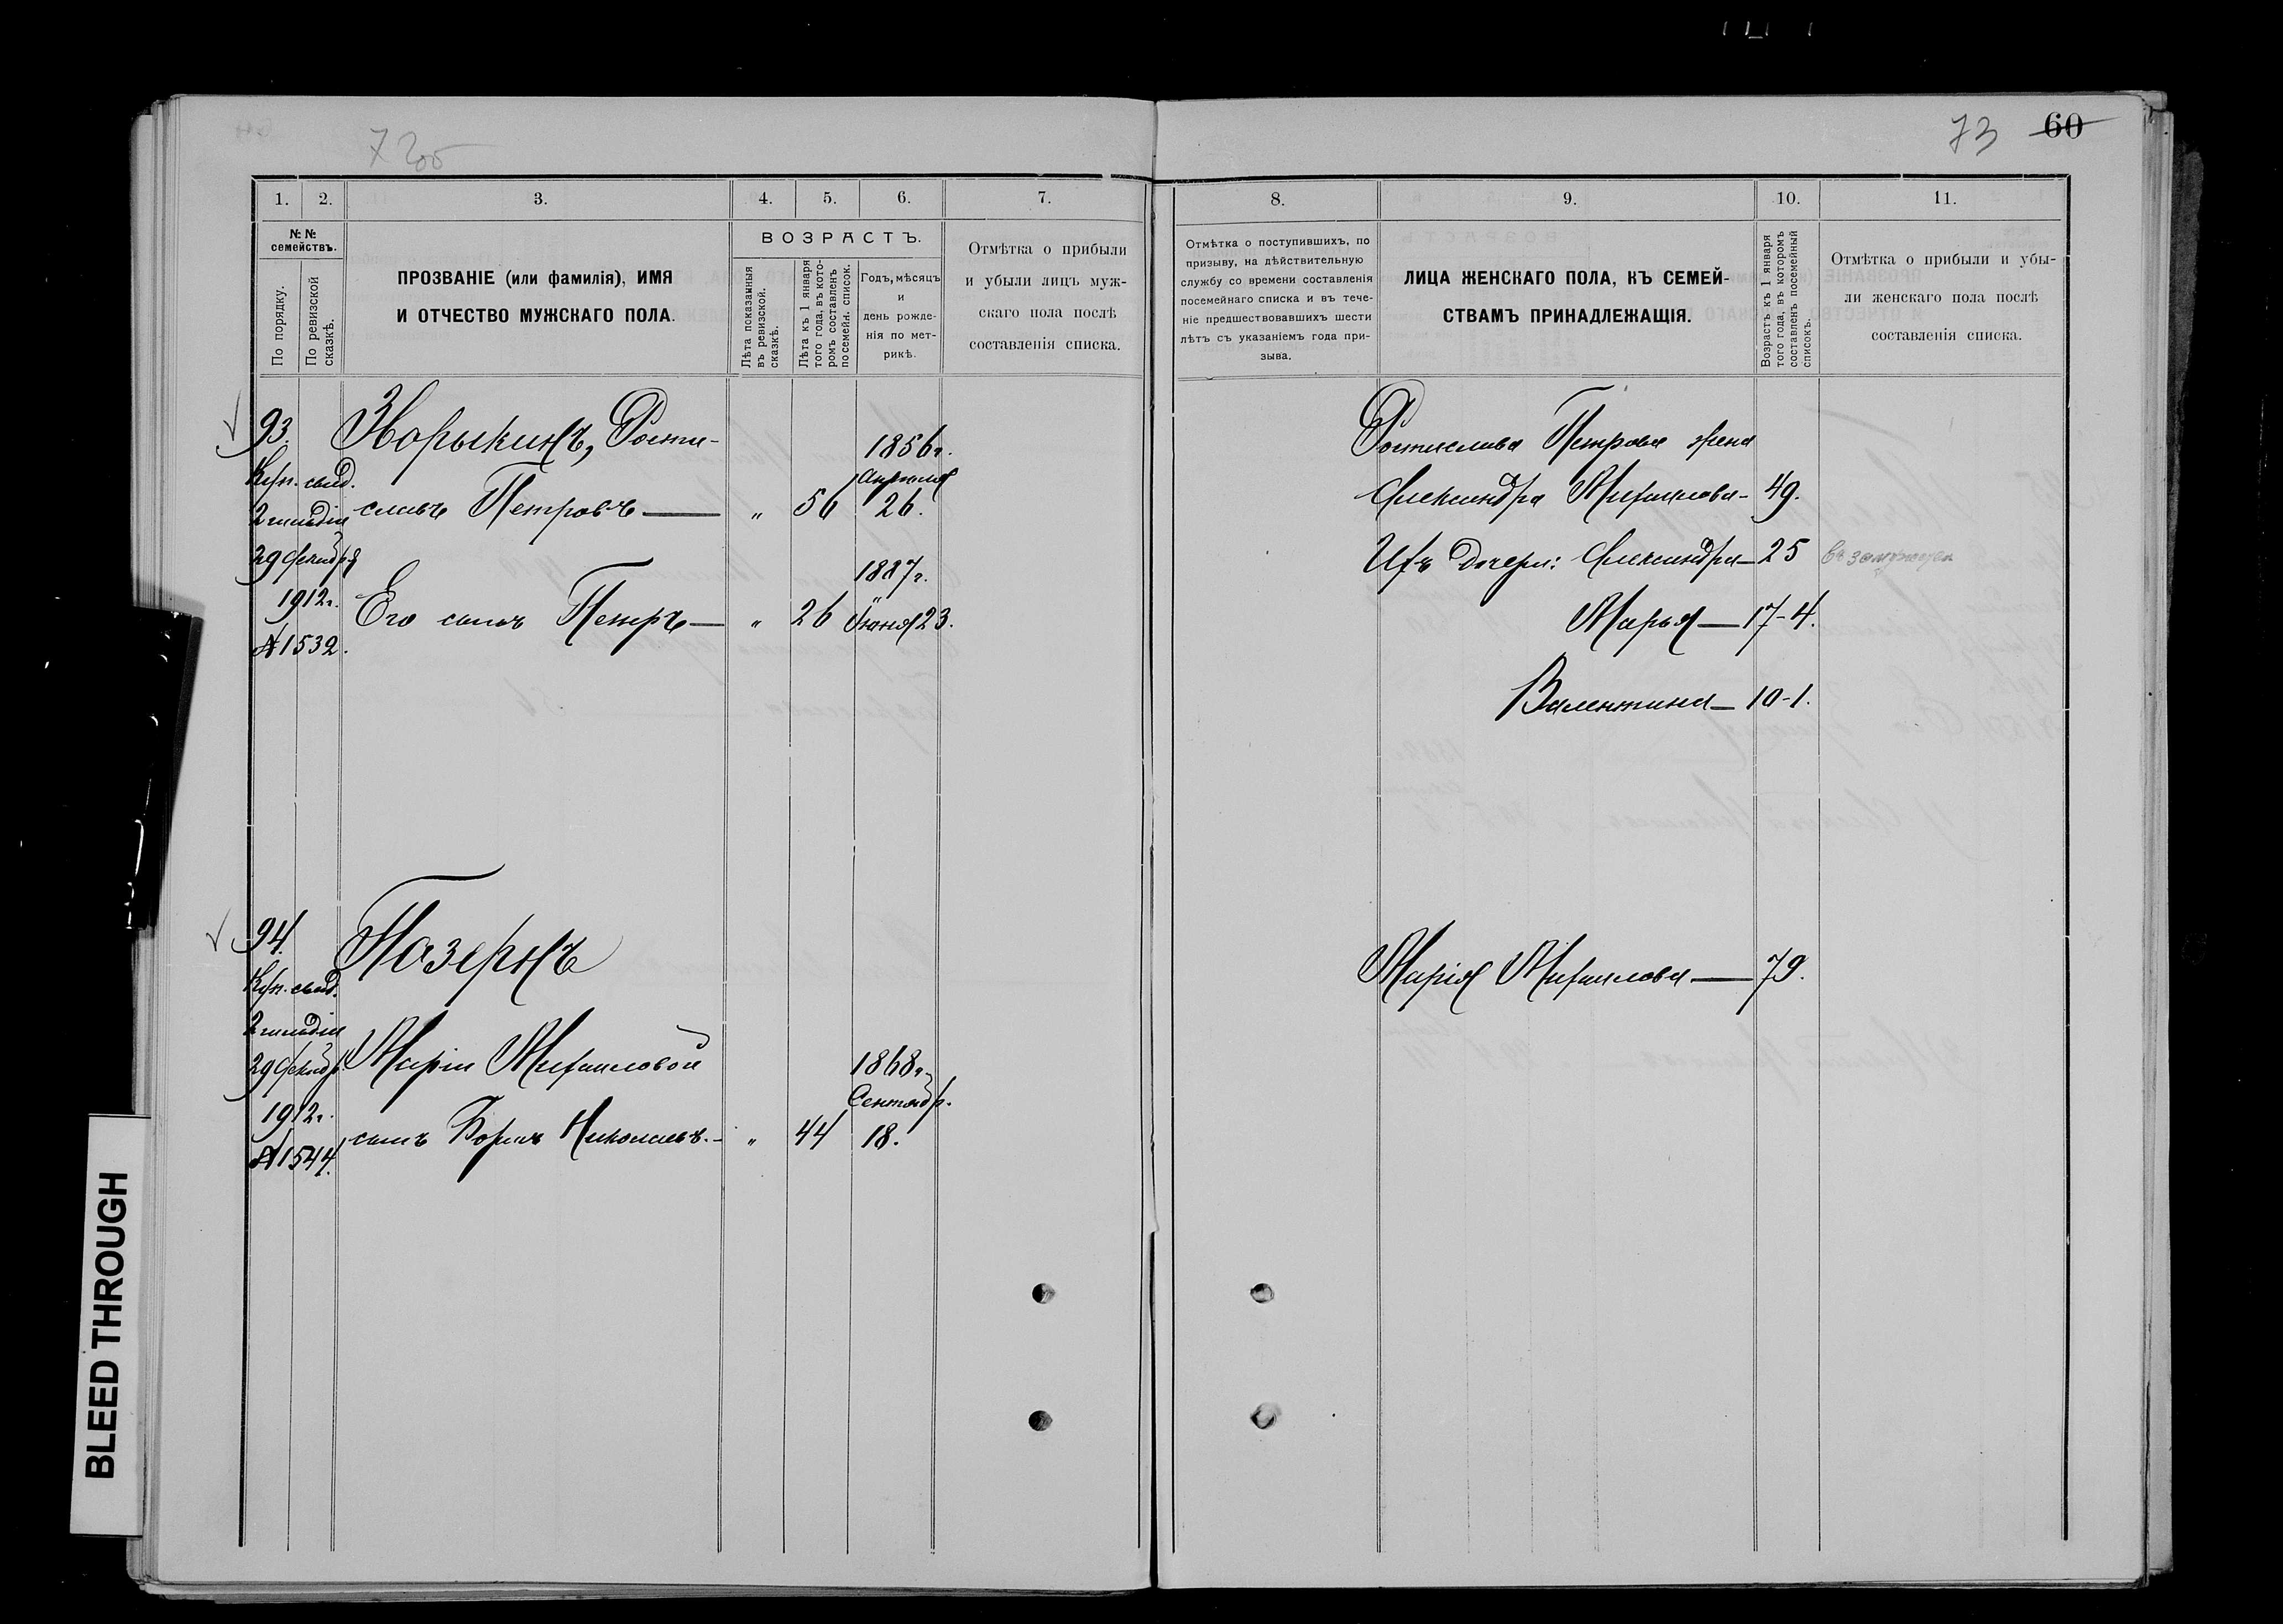 72об
73 60
1. 2. 3. 4. 5. 6. 7.
№№ семействъ.
По порядку.
По ревизской сказкѣ.
ПРОЗВАНІЕ (или фамилія), ИМЯ
И ОТЧЕСТВО МУЖСКАГО ПОЛА.
ВОЗРАСТЪ.
Лѣта показанныя
въ ревизской.
сказкѣ.
Лѣта къ 1 января
того года, въ кото-
ромъ составленъ
посемейн. список.
Годъ, мѣсяцъ
и
день рожде-
нія по мет-
рикѣ.
Отмѣтка о прибыли
и убыли лицъ муж-
скаго пола послѣ
составленія списка.
93. Зворыкинъ, Рости-
1856г.
Куп. свид.
Апрѣля
2 гильдіи славъ Петровъ — " 56 26.
29 Декабря
1887г.
1912г. Его сынъ Петръ — " 26 Іюня 23.
№1532.
94. Позернъ
Куп. свид.
2 гильдіи
29 Декабр. Маріи Михаиловой
1868г.
Сентябр.
1912г. сынъ Борисъ Николаевъ. — " 44 18.
№1544.
8. 9. 10. 11.
Отмѣтка о поступившихъ, по
призыву, на дѣйствительную
службу со времени составленія
посемейнаго списка и въ тече-
ніе предшествовавшихъ шести
лѣтъ съ указаніемъ года при-
зыва.
ЛИЦА ЖЕНСКАГО ПОЛА, КЪ СЕМЕЙ-
СТВАМЪ ПРИНАДЛЕЖАЩІЯ.
Возрастъ къ 1 января
того года, въ которомъ
составленъ посемейный
списокъ.
Отмѣтка о прибыли и убы-
ли женскаго пола послѣ
составленія списка.
Ростислава Петрова жена
Александра Михаилова — 49.
Ихъ дочери: Александра — 25
Марья — 17-4.
Валентина — 10-1.
Марія Михаилова — 79.
BLEED THROUGH